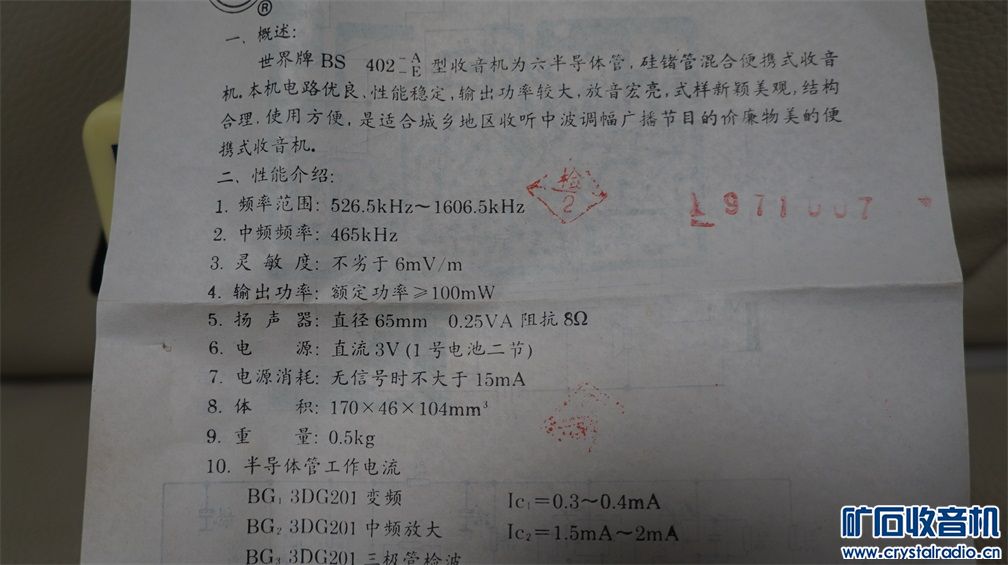 ®
一、概述：
世界牌 BS 402-A-E 型收音机为六半导体管，硅锗管混合便携式收音
机。本机电路优良、性能稳定，输出功率较大，放音宏亮，式样新颖美观，结构
合理，使用方便，是适合城乡地区收听中波调幅广播节目的价廉物美的便
携式收音机。
二、性能介绍：
检
2
1. 频率范围：526.5kHz～1606.5kHz
2. 中频频率：465kHz
3. 灵敏度：不劣于 6mV/m
4. 输出功率：额定功率≥100mW
5. 扬声器：直径65mm 0.25VA 阻抗 8Ω
6. 电源：直流3V (1号电池二节)
7. 电源消耗：无信号时不大于 15mA
8. 体积：170×46×104mm³
9. 重量：0.5kg
10. 半导体管工作电流
BG₁ 3DG201 变频 Ic₁＝0.3～0.4mA
BG₂ 3DG201 中频放大 Ic₂＝1.5mA～2mA
BG₃ 3DG201 三极管检波
矿石收音机
www.crystalradio.cn